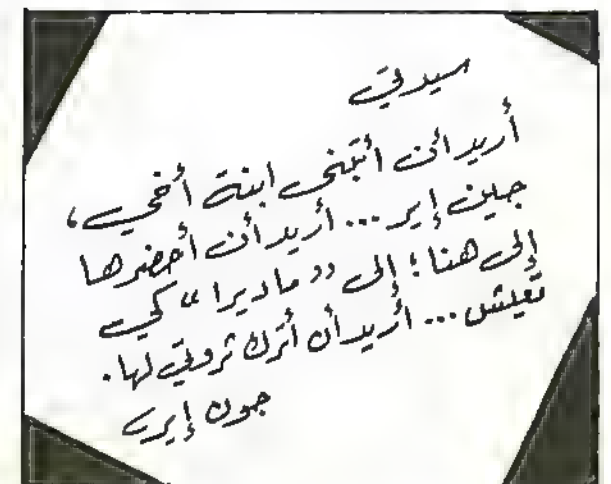 سيدتي
أريد أن أتبنى ابنة أخي،
جين إير... أريد أن أحضرها
إلى هنا؛ إلى «ماديرا» كي
تعيش... أريد أن أترك ثروتي لها.
جون إير